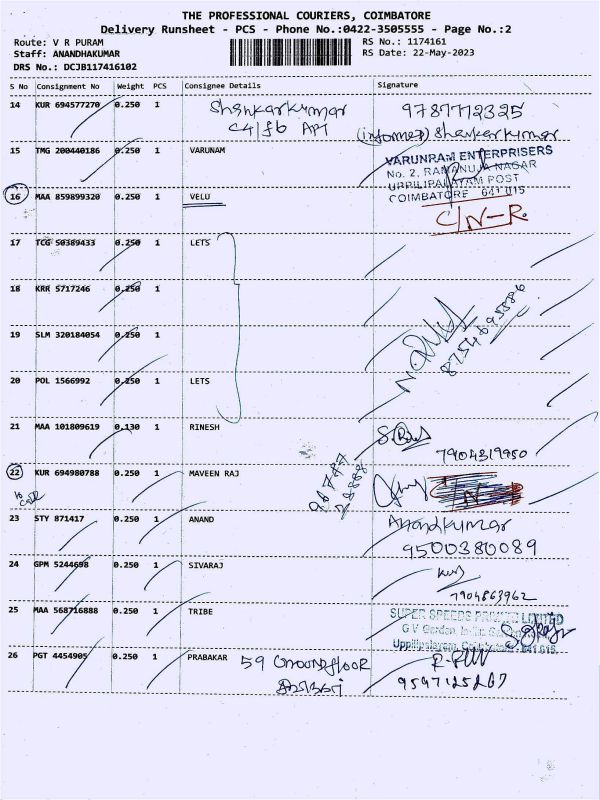 THE PROFESSIONAL COURIERS, COIMBATORE
Delivery Runsheet - PCS - Phone No.:0422-3505555 - Page No.:2
Route: V R PURAM
Staff: ANANDHAKUMAR
DRS No.: DCJB117416102
RS No.: 1174161
RS Date: 22-May-2023
S No Consignment No Weight PCS Consignee Details Signature
14 KUR 694577270 0.250 1 Shankarkumar 9787712325
C4/f6 APT (informed) Shankarkumar
15 TMG 200440186 0.250 1 VARUNAM VARUNRAM ENTERPRISERS
No. 2, RAMANUJA NAGAR
UPPILIPALAYAM POST
COIMBATORE 641 015
16 MAA 859899320 0.250 1 VELU C/N-R.
17 TCG 50389433 0.250 1 LETS
18 KRR 5717246 0.250 1
8754695886
19 SLM 320184054 0.250 1
20 POL 1566992 0.250 1 LETS
21 MAA 101809619 0.130 1 RINESH
7904319950
22 KUR 694980788 0.250 1 MAVEEN RAJ C/N-R
23 STY 871417 0.250 1 ANAND Anandkumar
9500380089
24 GPM 5244698 0.250 1 SIVARAJ
7904863962
25 MAA 568716888 0.250 1 TRIBE SUPER SPEEDS PRIVATE LIMITED
G V Garden,
Uppilipalayam, 641 015.
26 PGT 4454905 0.250 1 PRABAKAR 59 Groundfloor
9597125267